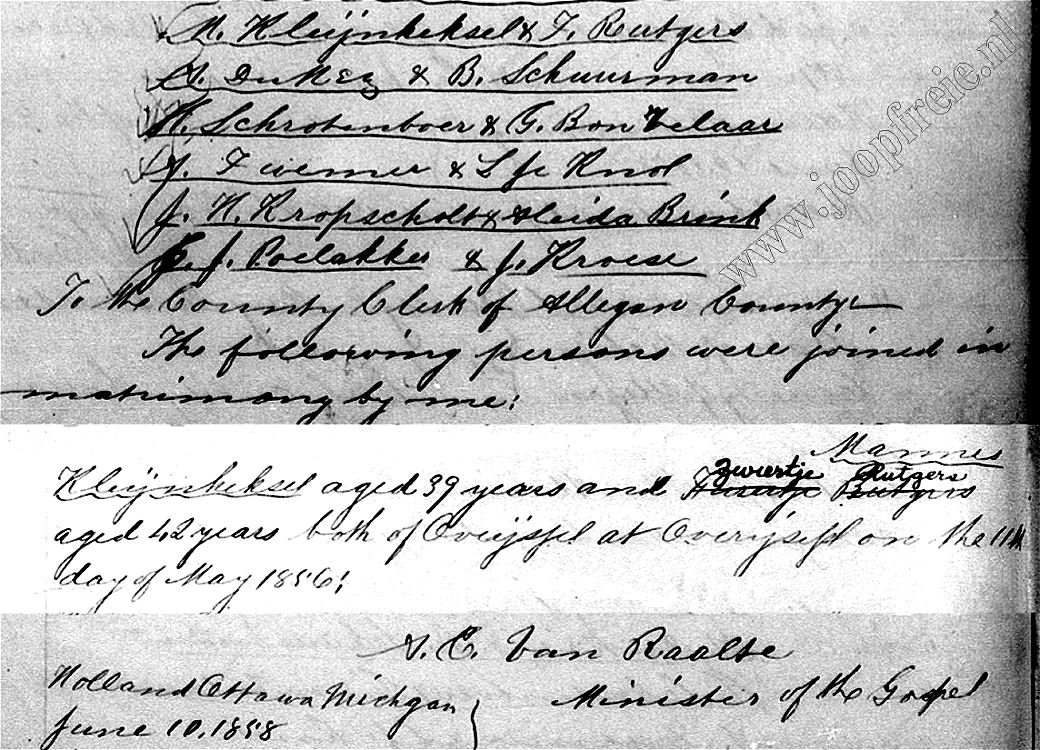 M. Kleijnheksel & F. Rutgers
A. DuMez & B. Schuurman
H. Schrotenboer & G. Bon Velaar
J. & L Knol
J. H. Kropscholt & Aleida Brink
J. Poelakker & J. Kroese
To the County Clerk of Allegan County:
The following persons were joined in
matrimony by me:
Mannes
Zwiertje Rutgers
Kleijnheksel aged 39 years and Rutgers
aged 42 years both of Overijssel at Overijssel on the 11th
day of May 1856;
A. C. Van Raalte
Holland Ottawa Michgan
Minister of the Gospel
June 10, 1858
www.joopfreie.nl